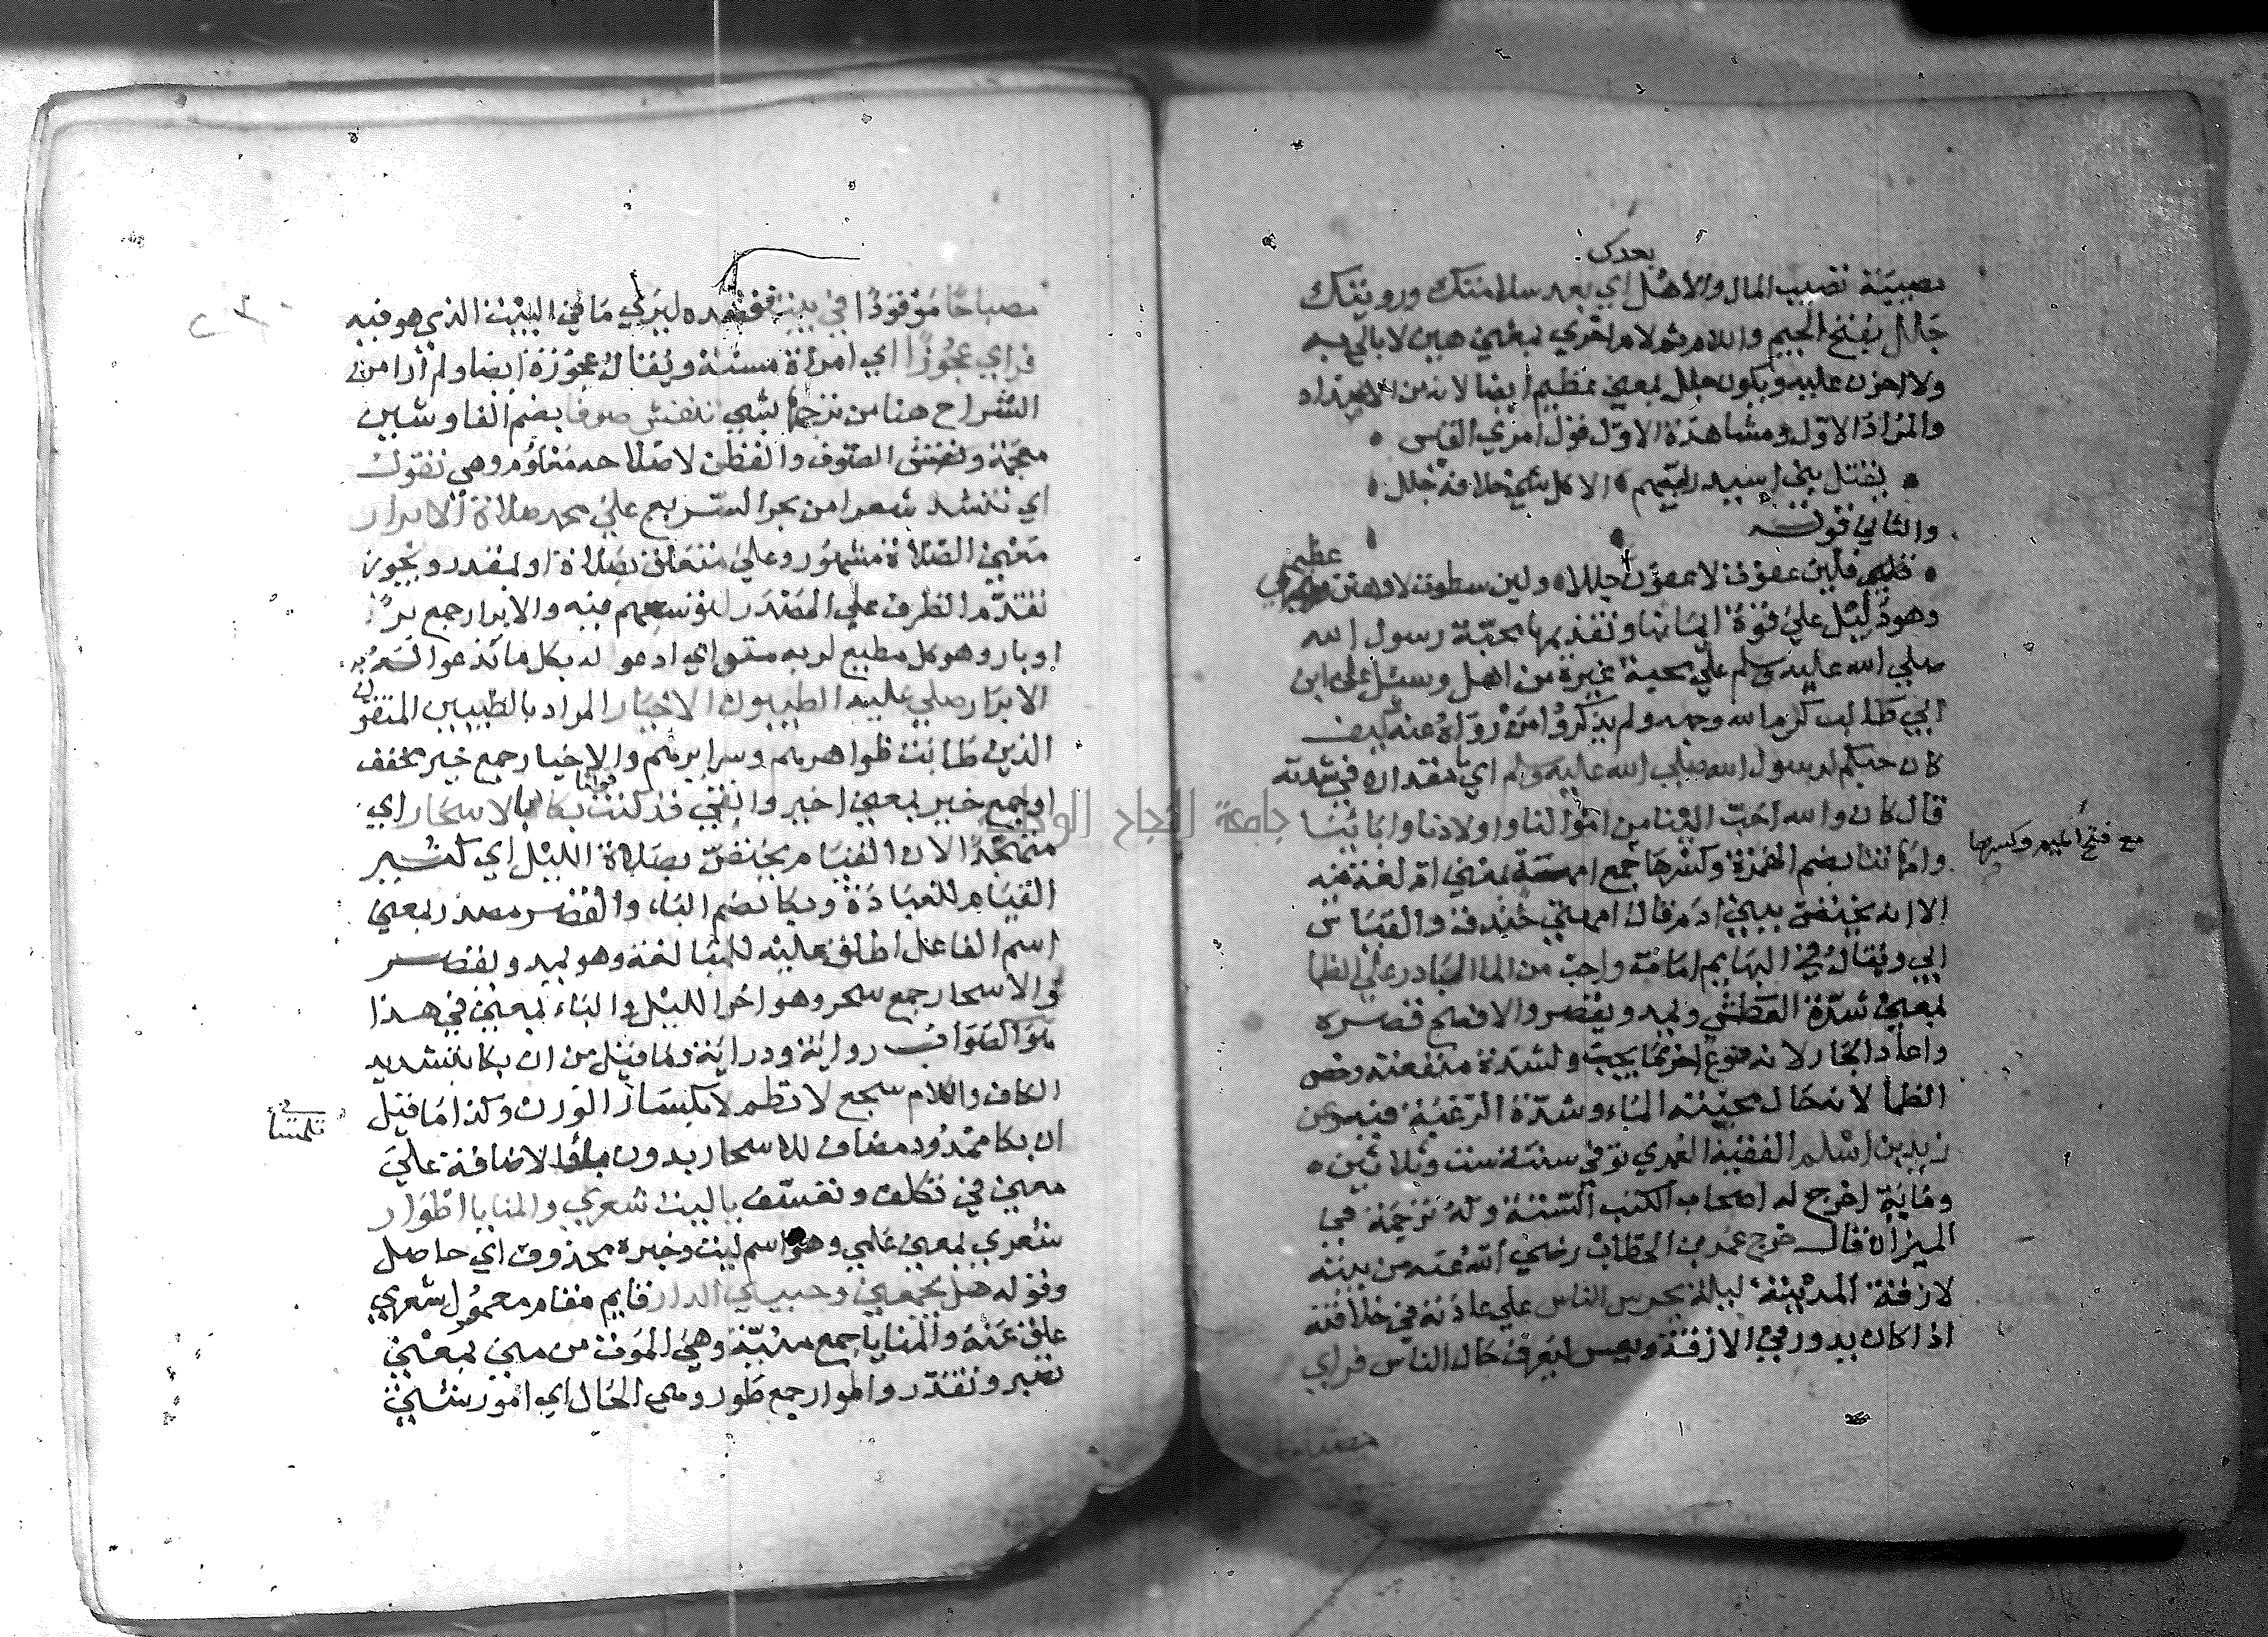 بعدك
مصيبة تصيب المال والاهل اي بعد سلامتك ورويتك
جلل بفتح الجيم واللام ثم لام اخري بمعني هين لا بالي به
ولا احزن عليه ويكون جلل بمعني عظيم ايضا لانه من الاضداد
والمراد الاول ومشاهدة الاول قول امري القيس
بقتل بني اسد ربهم الا كل شي خلافه جلل
والثاني قوله
عظمي
فلين عفوت لاعفون جللا ولين سطوت لاوهنن
وهو دليل علي قوة ايمانها وتقديمها محبة رسول الله
صلي الله عليه وسلم علي محبة غيره من اهل وسئل علي ابن
ابي طالب كرم الله وجهه ولم يذكروا من رواه عنه كيف
كان حبكم لرسول الله صلي الله عليه وسلم اي ما مقداره في شدته
قال كان والله احب الينا من اموالنا واولادنا وابائنا
مع فتح الميم وكسرها
وامهاتنا بضم الهمزة وكسرها جمع امهة بمعني ام لغة فيه
الا انه يختص ببني ادم قال امهتي خندف والياس
ابي ويقال في البهايم امات واحب من الما البارد علي الظما
بمعني شدة العطش ويمد ويقصر والافصح قصره
واعاد الجار لانه نوع اخر مما يحب ولشدة منفعته وخص
الظما لانه حال محبته الماء وشدة الرغبة فيه وعن
زيد بن اسلم الفقيه العمري توفي سنة ست وثلاثين
وماية اخرج له اصحاب الكتب الستة وله ترجمة في
الميزان قال خرج عمر بن الخطاب رضي الله عنه من بيته
لازقة المدينة ليلة يحرس الناس علي عادته في خلافته
اذا كان يدور في الازقة ويعس ليعرف حال الناس فراي
مصباحا
مصباحا موقودا في بيت فقصده ليري ما في البيت الذي هو فيه
فراي عجوزا اي امراة مسنة ويقال عجوزة ايضا ولم ار من
الشراح هنا من ترجمها بشي تنفش صوفا بضم الفا وشين
معجمة ونفش الصوف والقطن لاصلاحه معلوم وهي تقول
اي تنشد شعرا من بحر السريع علي محمد صلاة الابرار
معني الصلاة مشهور وعلي متعلق بصلاة او بمقدر ويجوز
تقدم الظرف علي المصدر لتوسعهم فيه والابرار جمع بر
او بار وهو كل مطيع لربه متق اي ادعو له بكل ما تدعوا له به
الابرار صلي عليه الطيبون الاخيار المراد بالطيبين المتقون
الذين طابت ظواهرهم وسرايرهم والاخيار جمع خير مخفف
او جمع خير بمعني اخير وابقي قد كنت قواما بكا بالاسحار اي
متهجدا لان القيام يختص بصلاة الليل اي كثير
القيام للعبادة وبكا بضم الباء والقصر مصدر بمعني
اسم الفاعل اطلق عليه للمبالغة وهو يمد ويقصر
والاسحار جمع سحر وهو اخر الليل والباء بمعني في هذا
هو الصواب رواية ودراية وما قيل من ان بكا بتشديد
الكاف والكلام سجع لا نظم لانكسار الوزن وكذا ما قيل
ان بكا ممدود مضاف للاسحار بدون بالاضافة علي
معني في تكلف وتعسف يا ليت شعري والمنايا اطوار
شعري بمعني علمي وهو اسم ليت وخبره محذوف اي حاصل
وقوله هل تجمعني وحبيبي الدار قايم مقام معمول شعري
علق عنه والمنايا جمع منية وهي الموت من مني بمعني
تقدر واطوار جمع طور وهي الحال اي امور شتي